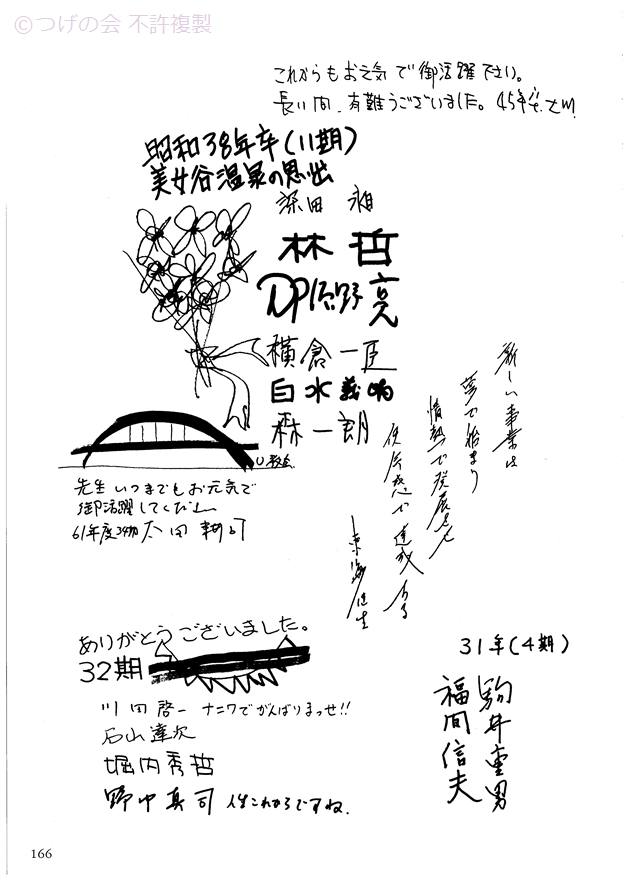 ©つげの会 不許複製
これからもお元気で御活躍下さい。
長い間、有難うございました。
昭和38年卒(11期)
美女谷温泉の思出
深田
林哲
佐野亮
横倉一臣
白水義
森一朗
先生いつまでもお元気で
御活躍してください
61年度34期 太田
新しい事業は
夢で始まり
情熱で発展
使命感で達成
ありがとうございました。
32期
川田啓一 ナニワでがんばりまっせ!!
石山達次
堀内秀哲
野中真司 人生これからですね。
31年(4期)
駒井重男
福間信夫
166